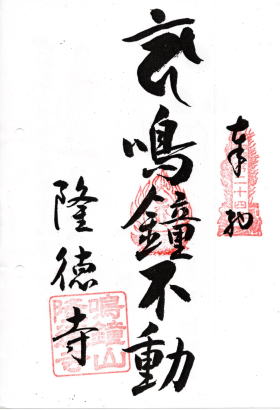 奉拝
二十四
鳴鐘不動
隆徳寺
鳴鐘山
隆徳寺